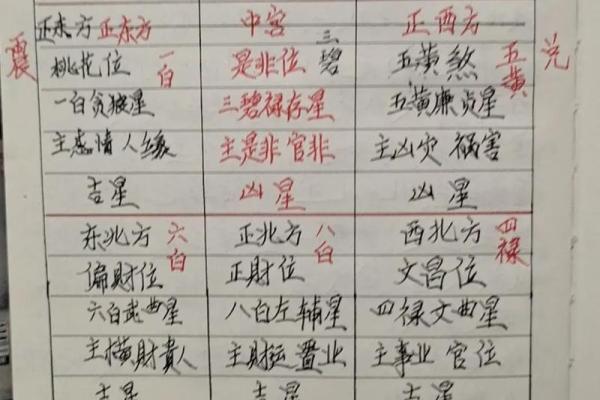 正东方 正东方 中宫 正西方
震 桃花位 一白 是非位 三碧 五黄煞 五黄 兑
一白贪狼星 三碧禄存星 五黄廉贞星
主感情人缘 主是非官非 主凶灾祸害
吉星 凶星 凶星
东北方 六白 正北方 八白 西北方 四禄
偏財位 正财位 文昌位
六白武曲星 八白左辅星 四禄文曲星
主横財貴人 主财运置业 主事业官位
吉星 吉星 吉星